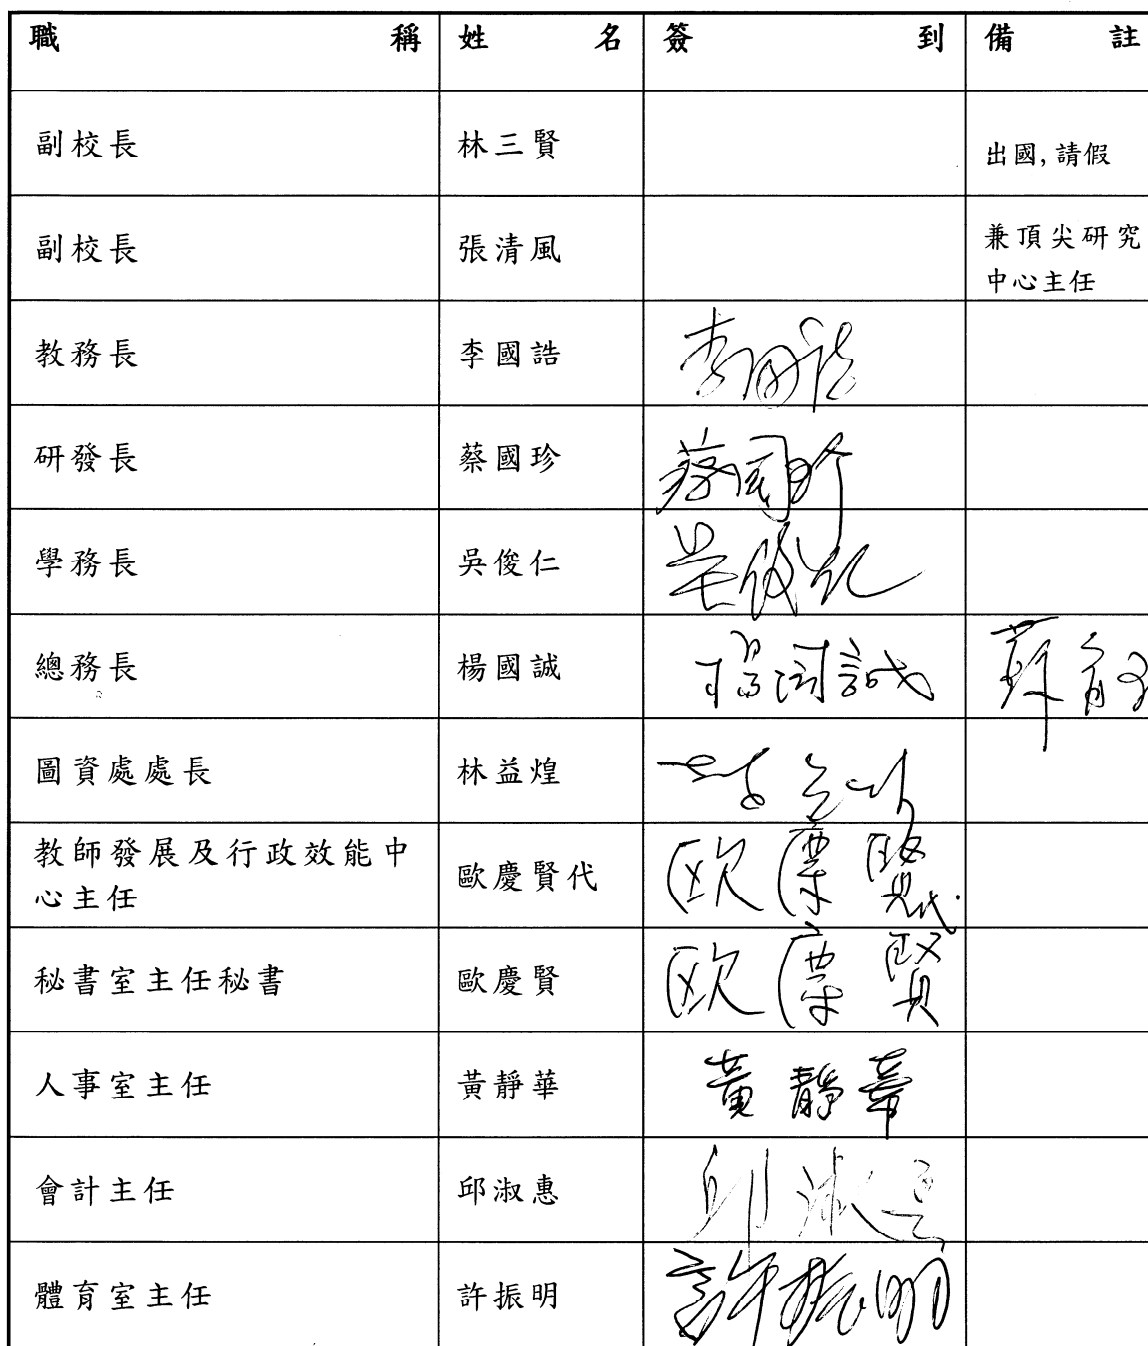 職稱 姓名 簽到 備註
副校長 林三賢 出國,請假
副校長 張清風 兼頂尖研究
中心主任
教務長 李國誥 李國誥
研發長 蔡國珍 蔡國珍
學務長 吳俊仁 吳俊仁
總務長 楊國誠 楊國誠
圖資處處長 林益煌
教師發展及行政效能中
心主任 歐慶賢代 欧慶賢代
秘書室主任秘書 歐慶賢 欧慶賢
人事室主任 黃靜華 黃靜華
會計主任 邱淑惠 邱淑惠
體育室主任 許振明 許振明